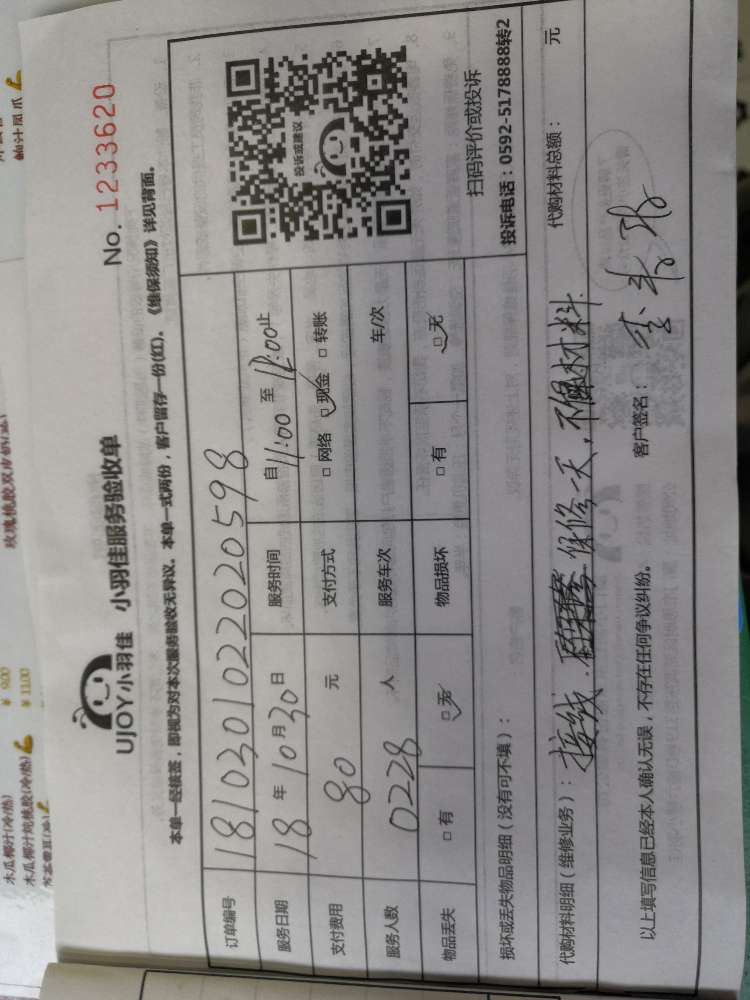 UJOY小羽佳 小羽佳服务验收单
No. 1233620
本单一经核签，即视为对本次服务验收无异议。本单一式两份，客户留存一份(红)。《维保须知》详见背面。
订单编号 181030102202020598
服务日期 18 年 10 月 30 日 服务时间 自 11:00 至 12:00 止
支付费用 80 元 支付方式 □ 网络 □ 现金 □ 转账
服务人数 0228 人 服务车次 车/次
物品丢失 □ 有 □ 无 物品损坏 □ 有 □ 无
投诉或建议
扫码评价或投诉
投诉电话：0592-5178888转2
损坏或丢失物品明细（没有可不填）：
代购材料明细（维修业务）：接线. 保修一天，不保材料
代购材料总额： 元
以上填写信息已经本人确认无误，不存在任何争议纠纷。 客户签名：
木瓜椰汁(冷/热) ¥ 9.00
木瓜椰汁炖桃胶(冷/热) ¥ 11.00
玫瑰桃胶双皮奶(冰)
鲍汁凤爪